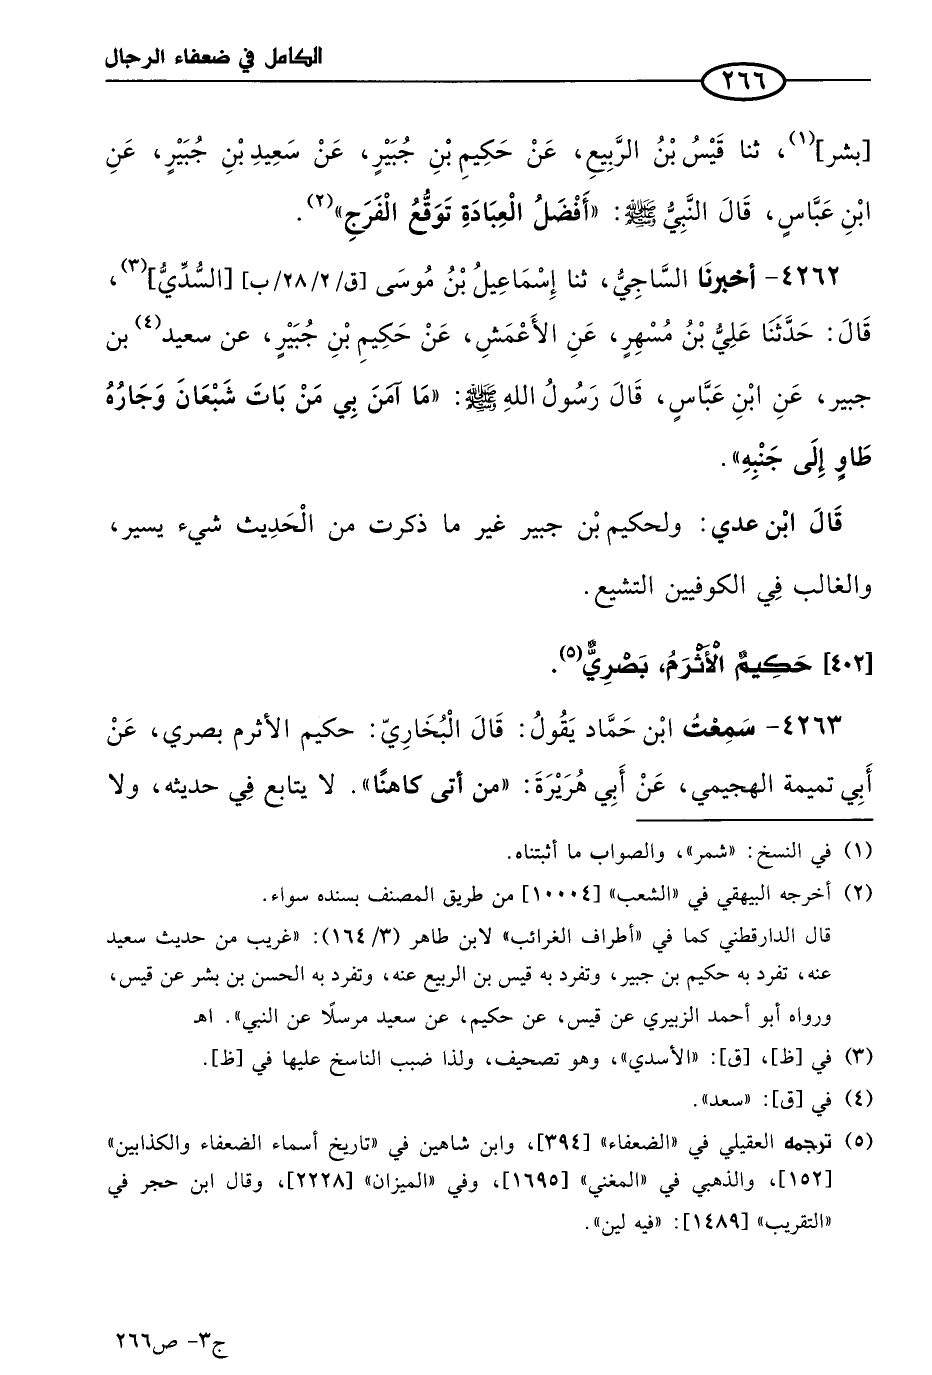 الكامل في ضعفاء الرجال
٢٦٦
[بشر](١)، ثنا قَيْسُ بْنُ الرَّبِيعِ، عَنْ حَكِيمِ بْنِ جُبَيْرٍ، عَنْ سَعِيدِ بْنِ جُبَيْرٍ، عَنِ
ابْنِ عَبَّاسٍ، قَالَ النَّبِيُّ ﷺ: «أَفْضَلُ الْعِبَادَةِ تَوَقُّعُ الْفَرَجِ»(٢).
٤٢٦٢- أخبرنَا السَّاجِيُّ، ثنا إِسْمَاعِيلُ بْنُ مُوسَى [ق/٢٨/٢/ب] [السُّدِّيُّ](٣)،
قَالَ: حَدَّثَنَا عَلِيُّ بْنُ مُسْهِرٍ، عَنِ الأَعْمَشِ، عَنْ حَكِيمِ بْنِ جُبَيْرٍ، عن سعيد(٤) بن
جبير، عَنِ ابْنِ عَبَّاسٍ، قَالَ رَسُولُ اللهِ ﷺ: «مَا آمَنَ بِي مَنْ بَاتَ شَبْعَانَ وَجَارُهُ
طَاوٍ إِلَى جَنْبِهِ».
قَالَ ابْن عدي: ولحكيم بْن جبير غير ما ذكرت من الْحَدِيث شيء يسير،
والغالب فِي الكوفيين التشيع.
[٤٠٢] حَكِيمٌ الْأَثْرَمُ، بَصْرِيٌّ(٥).
٤٢٦٣- سَمِعْتُ ابْن حَمَّاد يَقُولُ: قَالَ الْبُخَارِيّ: حكيم الأثرم بصري، عَنْ
أَبِي تميمة الهجيمي، عَنْ أَبِي هُرَيْرَةَ: «من أتى كاهنًا». لا يتابع فِي حديثه، ولا
(١) في النسخ: «شمر»، والصواب ما أثبتناه.
(٢) أخرجه البيهقي في «الشعب» [١٠٠٠٤] من طريق المصنف بسنده سواء.
قال الدارقطني كما في «أطراف الغرائب» لابن طاهر (٣/ ١٦٤): «غريب من حديث سعيد
عنه، تفرد به حكيم بن جبير، وتفرد به قيس بن الربيع عنه، وتفرد به الحسن بن بشر عن قيس،
ورواه أبو أحمد الزبيري عن قيس، عن حكيم، عن سعيد مرسلًا عن النبي». اهـ
(٣) في [ظ]، [ق]: «الأسدي»، وهو تصحيف، ولذا ضبب الناسخ عليها في [ظ].
(٤) في [ق]: «سعد».
(٥) ترجمه العقيلي في «الضعفاء» [٣٩٤]، وابن شاهين في «تاريخ أسماء الضعفاء والكذابين»
[١٥٢]، والذهبي في «المغني» [١٦٩٥]، وفي «الميزان» [٢٢٢٨]، وقال ابن حجر في
«التقريب» [١٤٨٩]: «فيه لين».
ج٣- ص٢٦٦